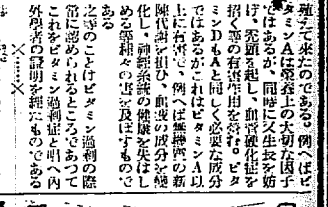 殖えて來たのである、例へばビ
タミンAは榮養上の大切な因子
ではあるが、同時に又生長を妨
げ、禿頭を起し、血管硬化症を
招く等の有害作用を營む。ビタ
ミンDもAと同しく必要な成分
ではあるがこれはビタミンA以
上に有害で、例へば無機質の新
陳代謝を損ひ、血液の成分を變
化し、神經系統の健康を失はし
める等種々の害を及ぼすもので
ある
之等のことはビタミン過剩の際
常に認められるところであつて
これをビタミン過剩症と唱へ內
外學者の證明を經たものである
×‥‥‥‥×